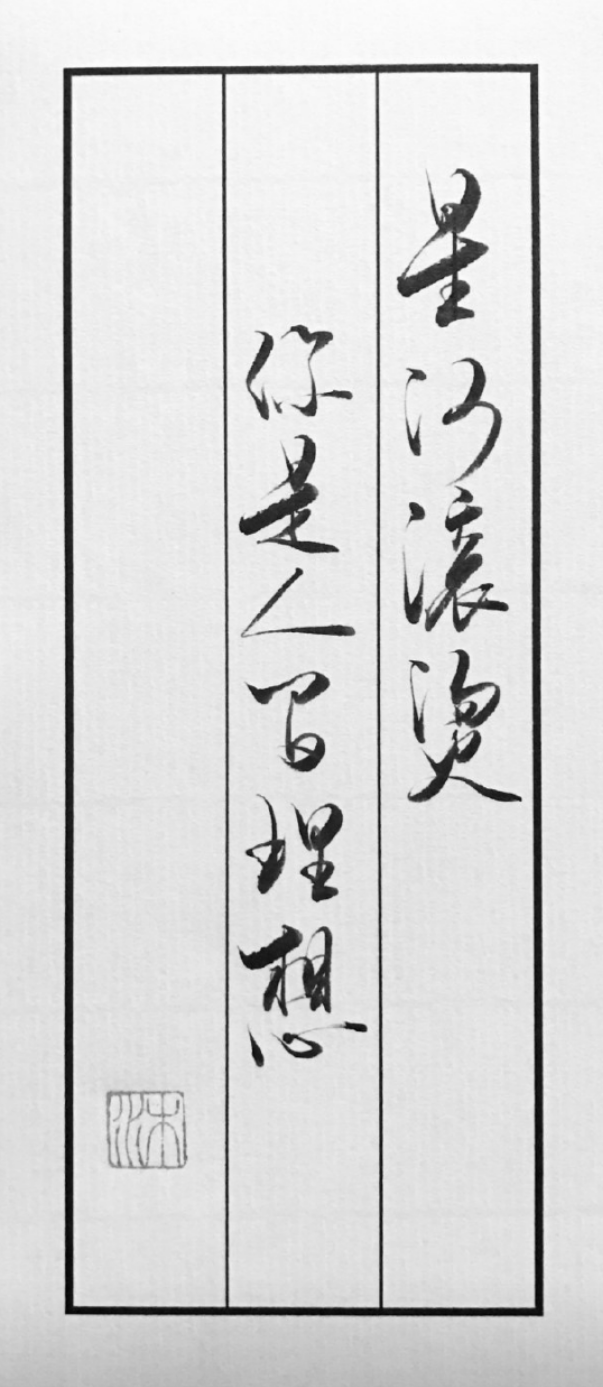 星河滚烫
你是人间理想
沐